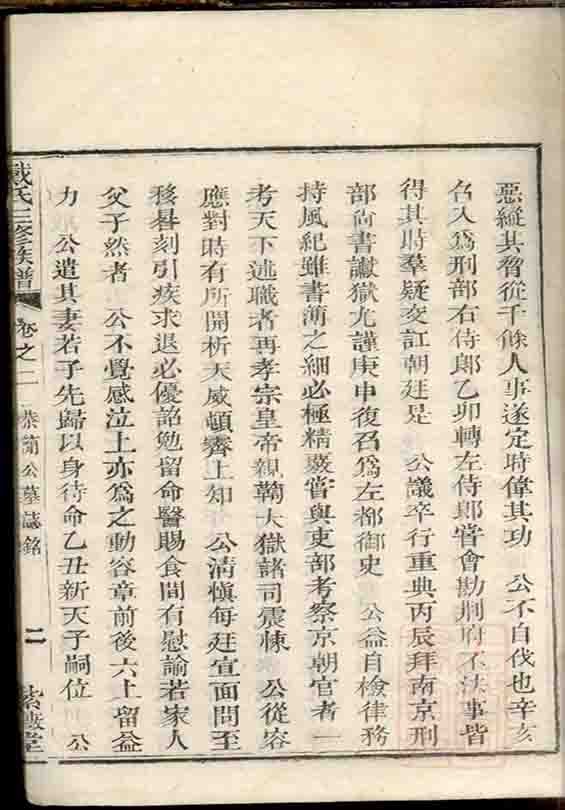 惡縱其脅從千餘人事遂定時偉其功　公不自伐也辛亥
召入爲刑部右侍郎乙卯轉左侍郎嘗會勘荆府不法事皆
得其時羣疑交訌朝廷是　公議卒行重典丙辰拜南京刑
部尚書讞獄尤謹庚申復召爲左都御史　公益自檢律務
持風紀雖書簿之細必極精覈嘗與吏部考察京朝官者一
考天下述職者再孝宗皇帝親鞫大獄諸司震悚　公從容
應對時有所開析天威頓霽上知　公清愼每廷宣面問至
移晷刻引疾求退必優詔勉留命醫賜食間有慰諭若家人
父子然者　公不覺感泣上亦爲之動容章前後六上留益
力　公遣其妻若子先歸以身待命乙丑新天子嗣位　公
戴氏三修族譜　卷之二　恭簡公墓誌銘　二　堂